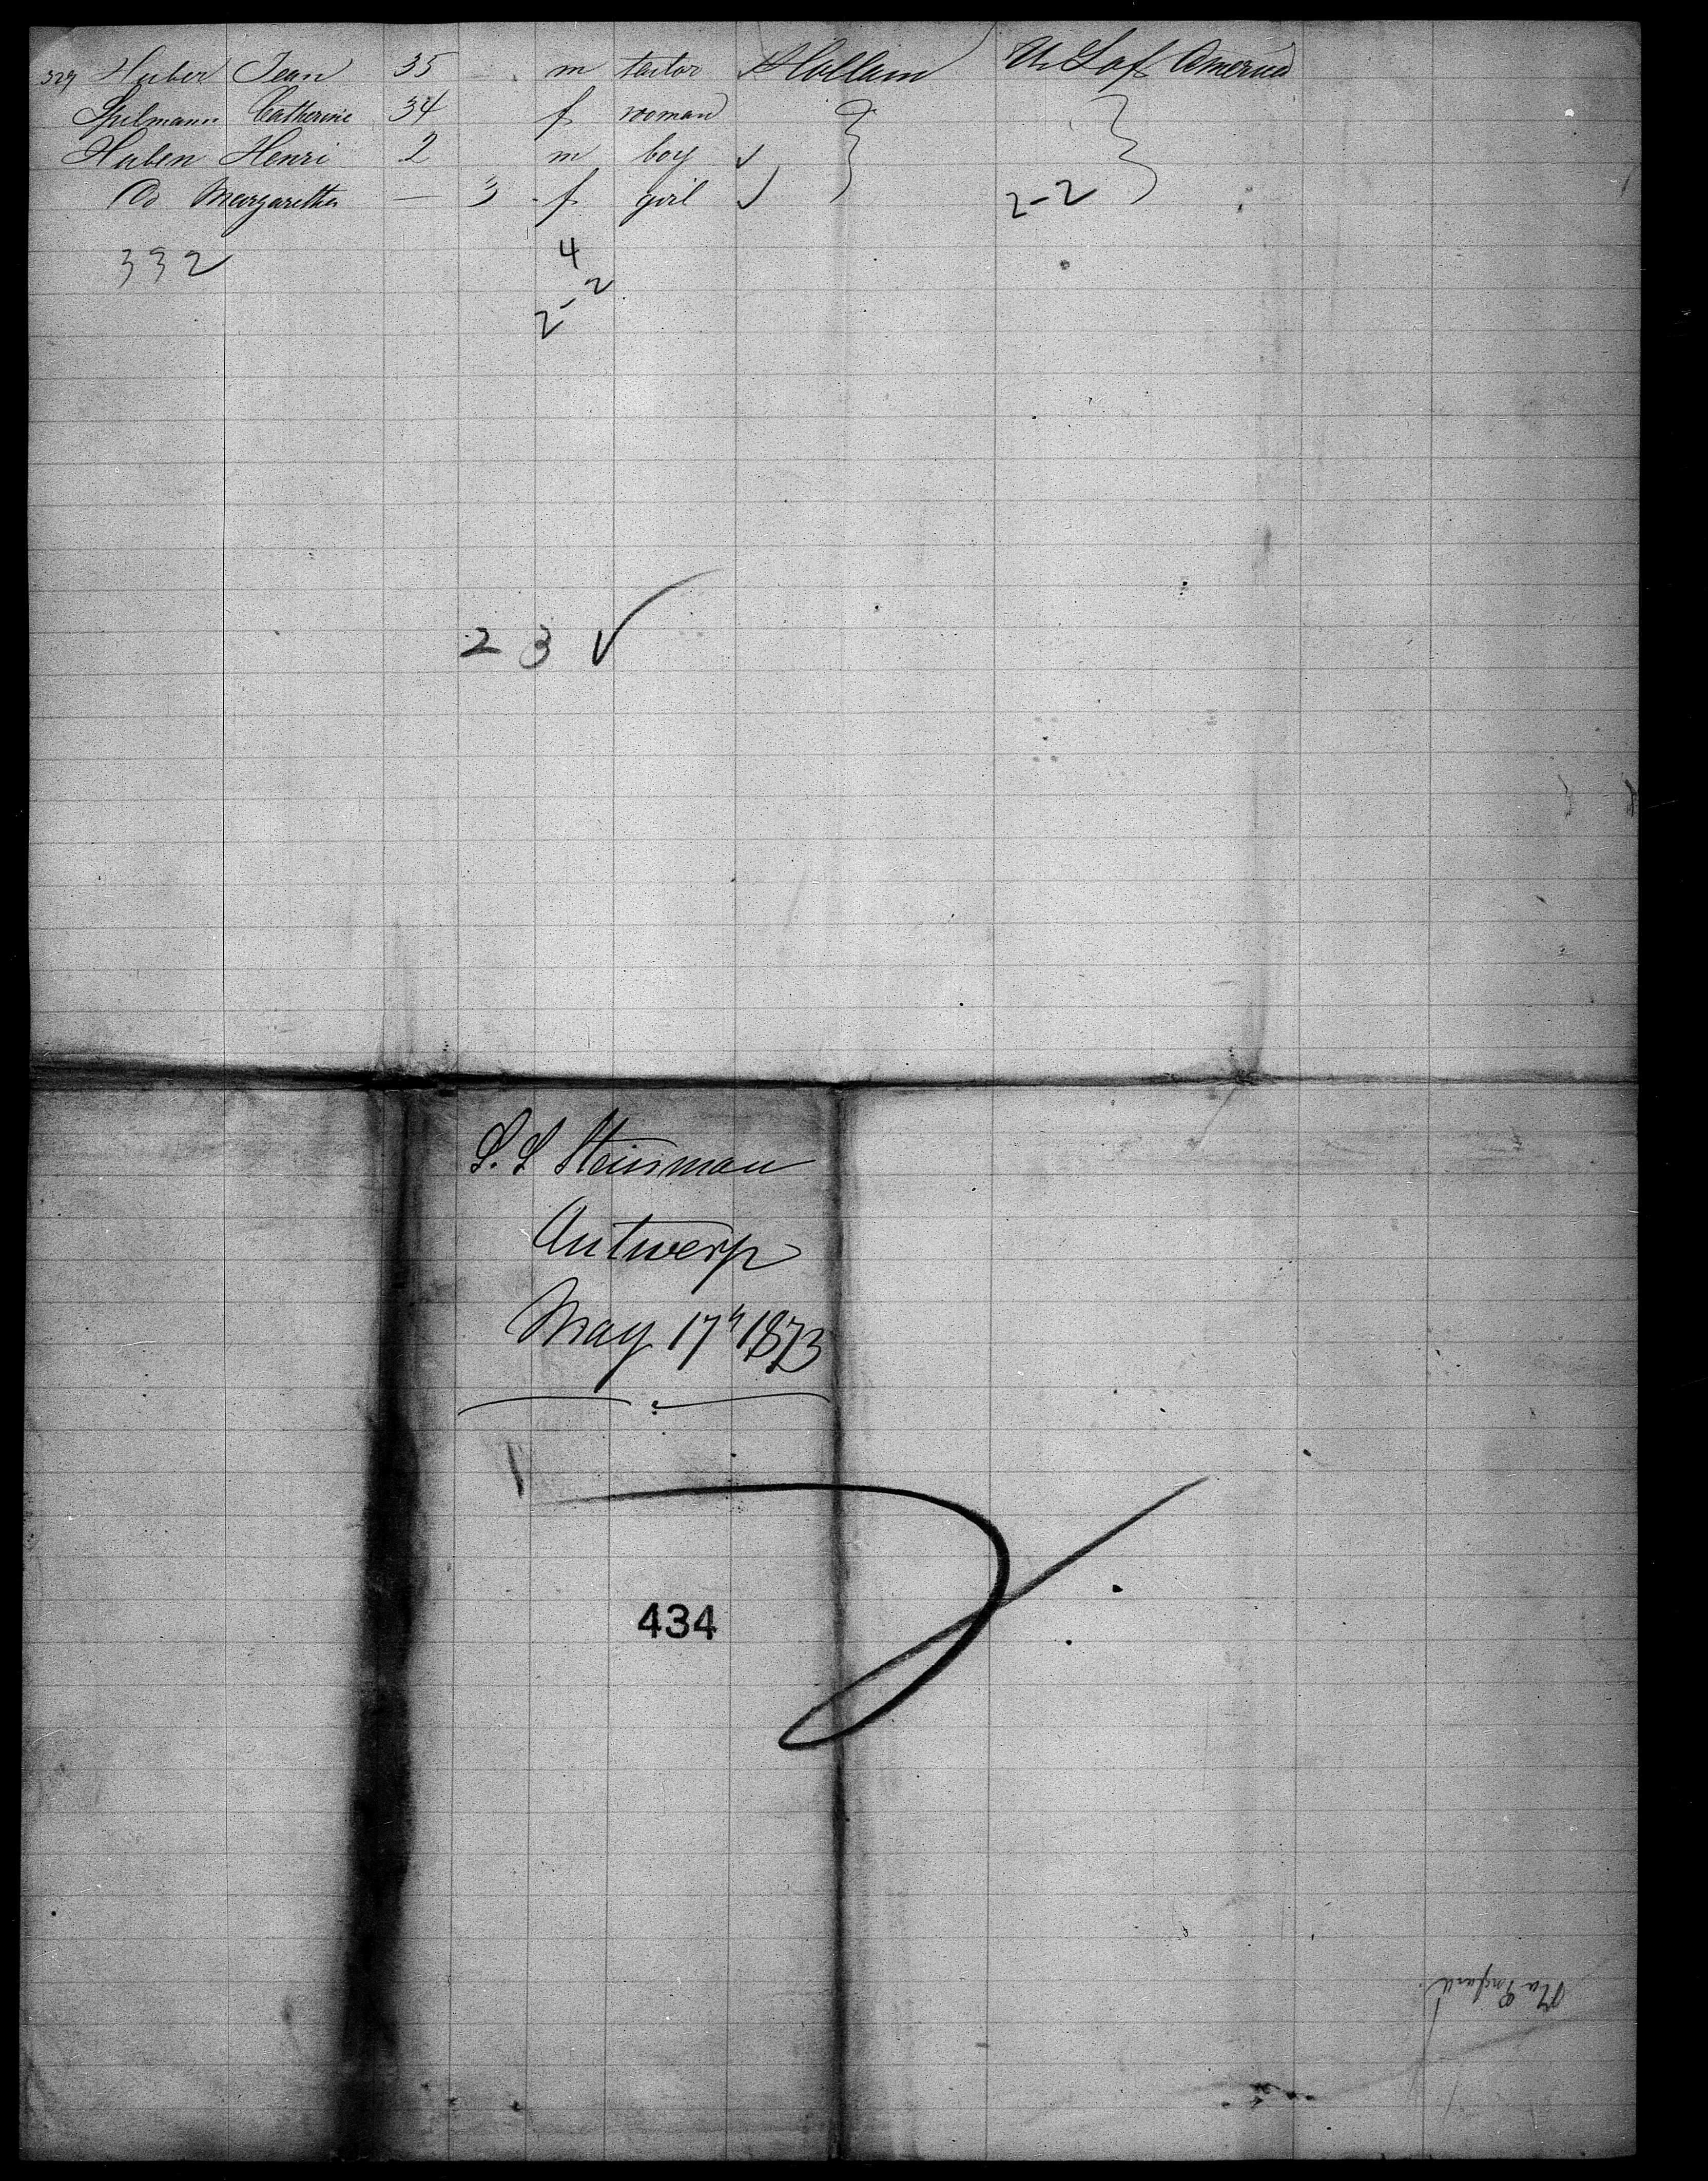 329 Huber Jean 35 m tailor Hollam U. S of America
Spelmann Catherine 34 f woman
Huben Henri 2 m boy
Do Margaretha — 3 f girl 2-2
332
4
2-2
2 3
S. S Steinman
Antwerp
May 17th 1873
434